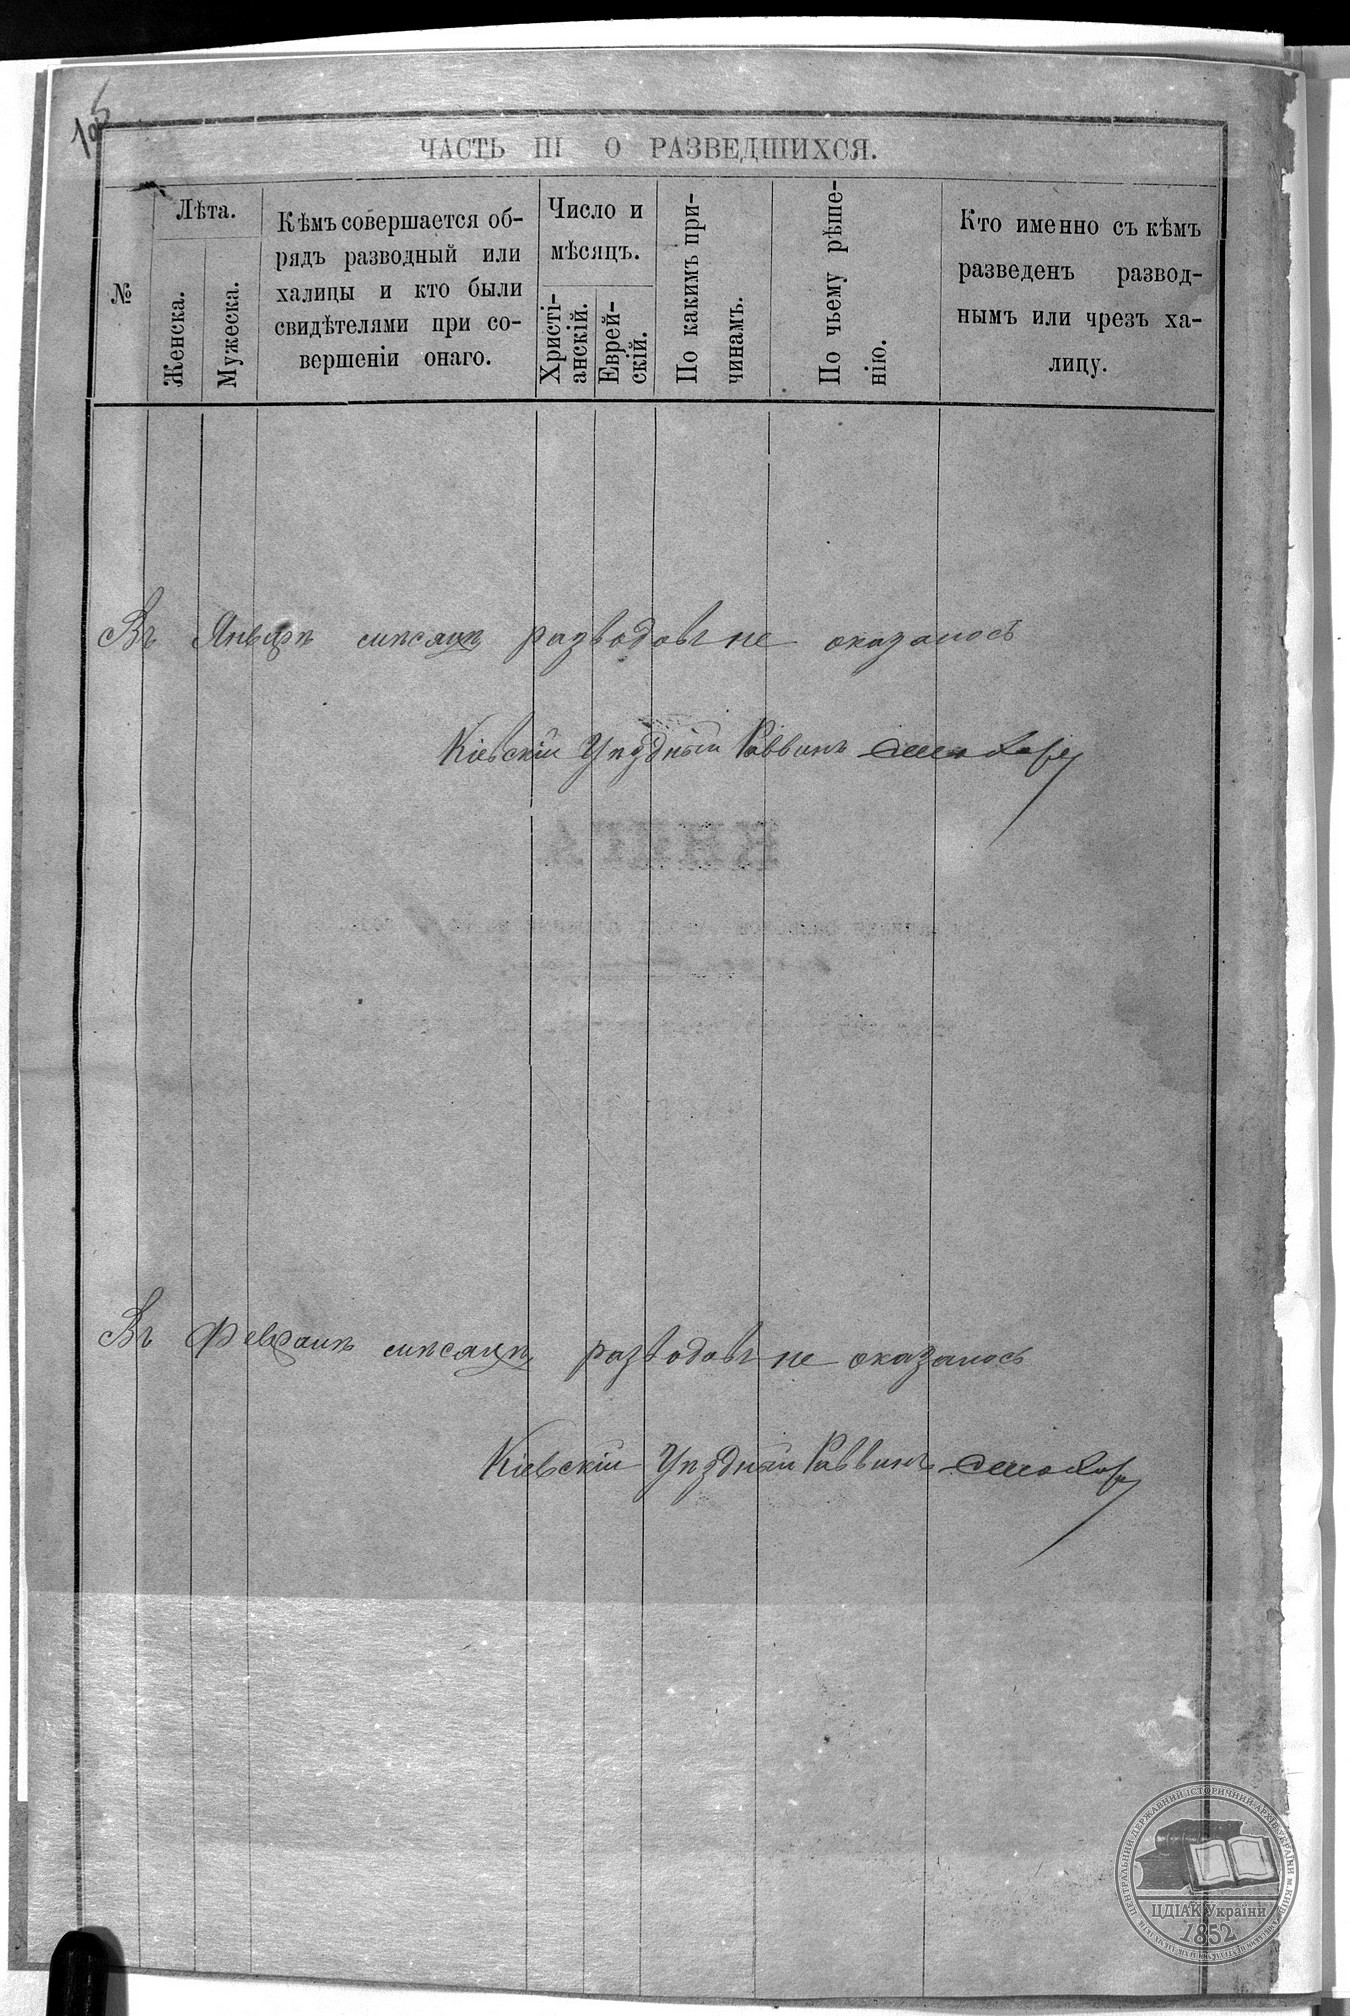 ЧАСТЬ III О РАЗВЕДШИХСЯ.
№
Лѣта.
Женска.
Мужеска.
Кѣмъ совершается об-
рядъ разводный или
халицы и кто были
свидѣтелями при со-
вершеніи онаго.
Число и
мѣсяцъ.
Христі-
анскій.
Еврей-
скій.
По какимъ при-
чинамъ.
По чьему рѣше-
нію.
Кто именно съ кѣмъ
разведенъ развод-
нымъ или чрезъ ха-
лицу.
Въ Январѣ мѣсяцѣ разводовъ не оказалось
Кіевскій Уѣздный Раввинъ
КНИГА
Въ Февралѣ мѣсяцѣ разводовъ не оказалось
Кіевскій Уѣздный Раввинъ
ЦЕНТРАЛЬНИЙ ДЕРЖАВНИЙ ІСТОРИЧНИЙ АРХІВ УКРАЇНИ М. КИЇВ
ЦДІАК України
1852